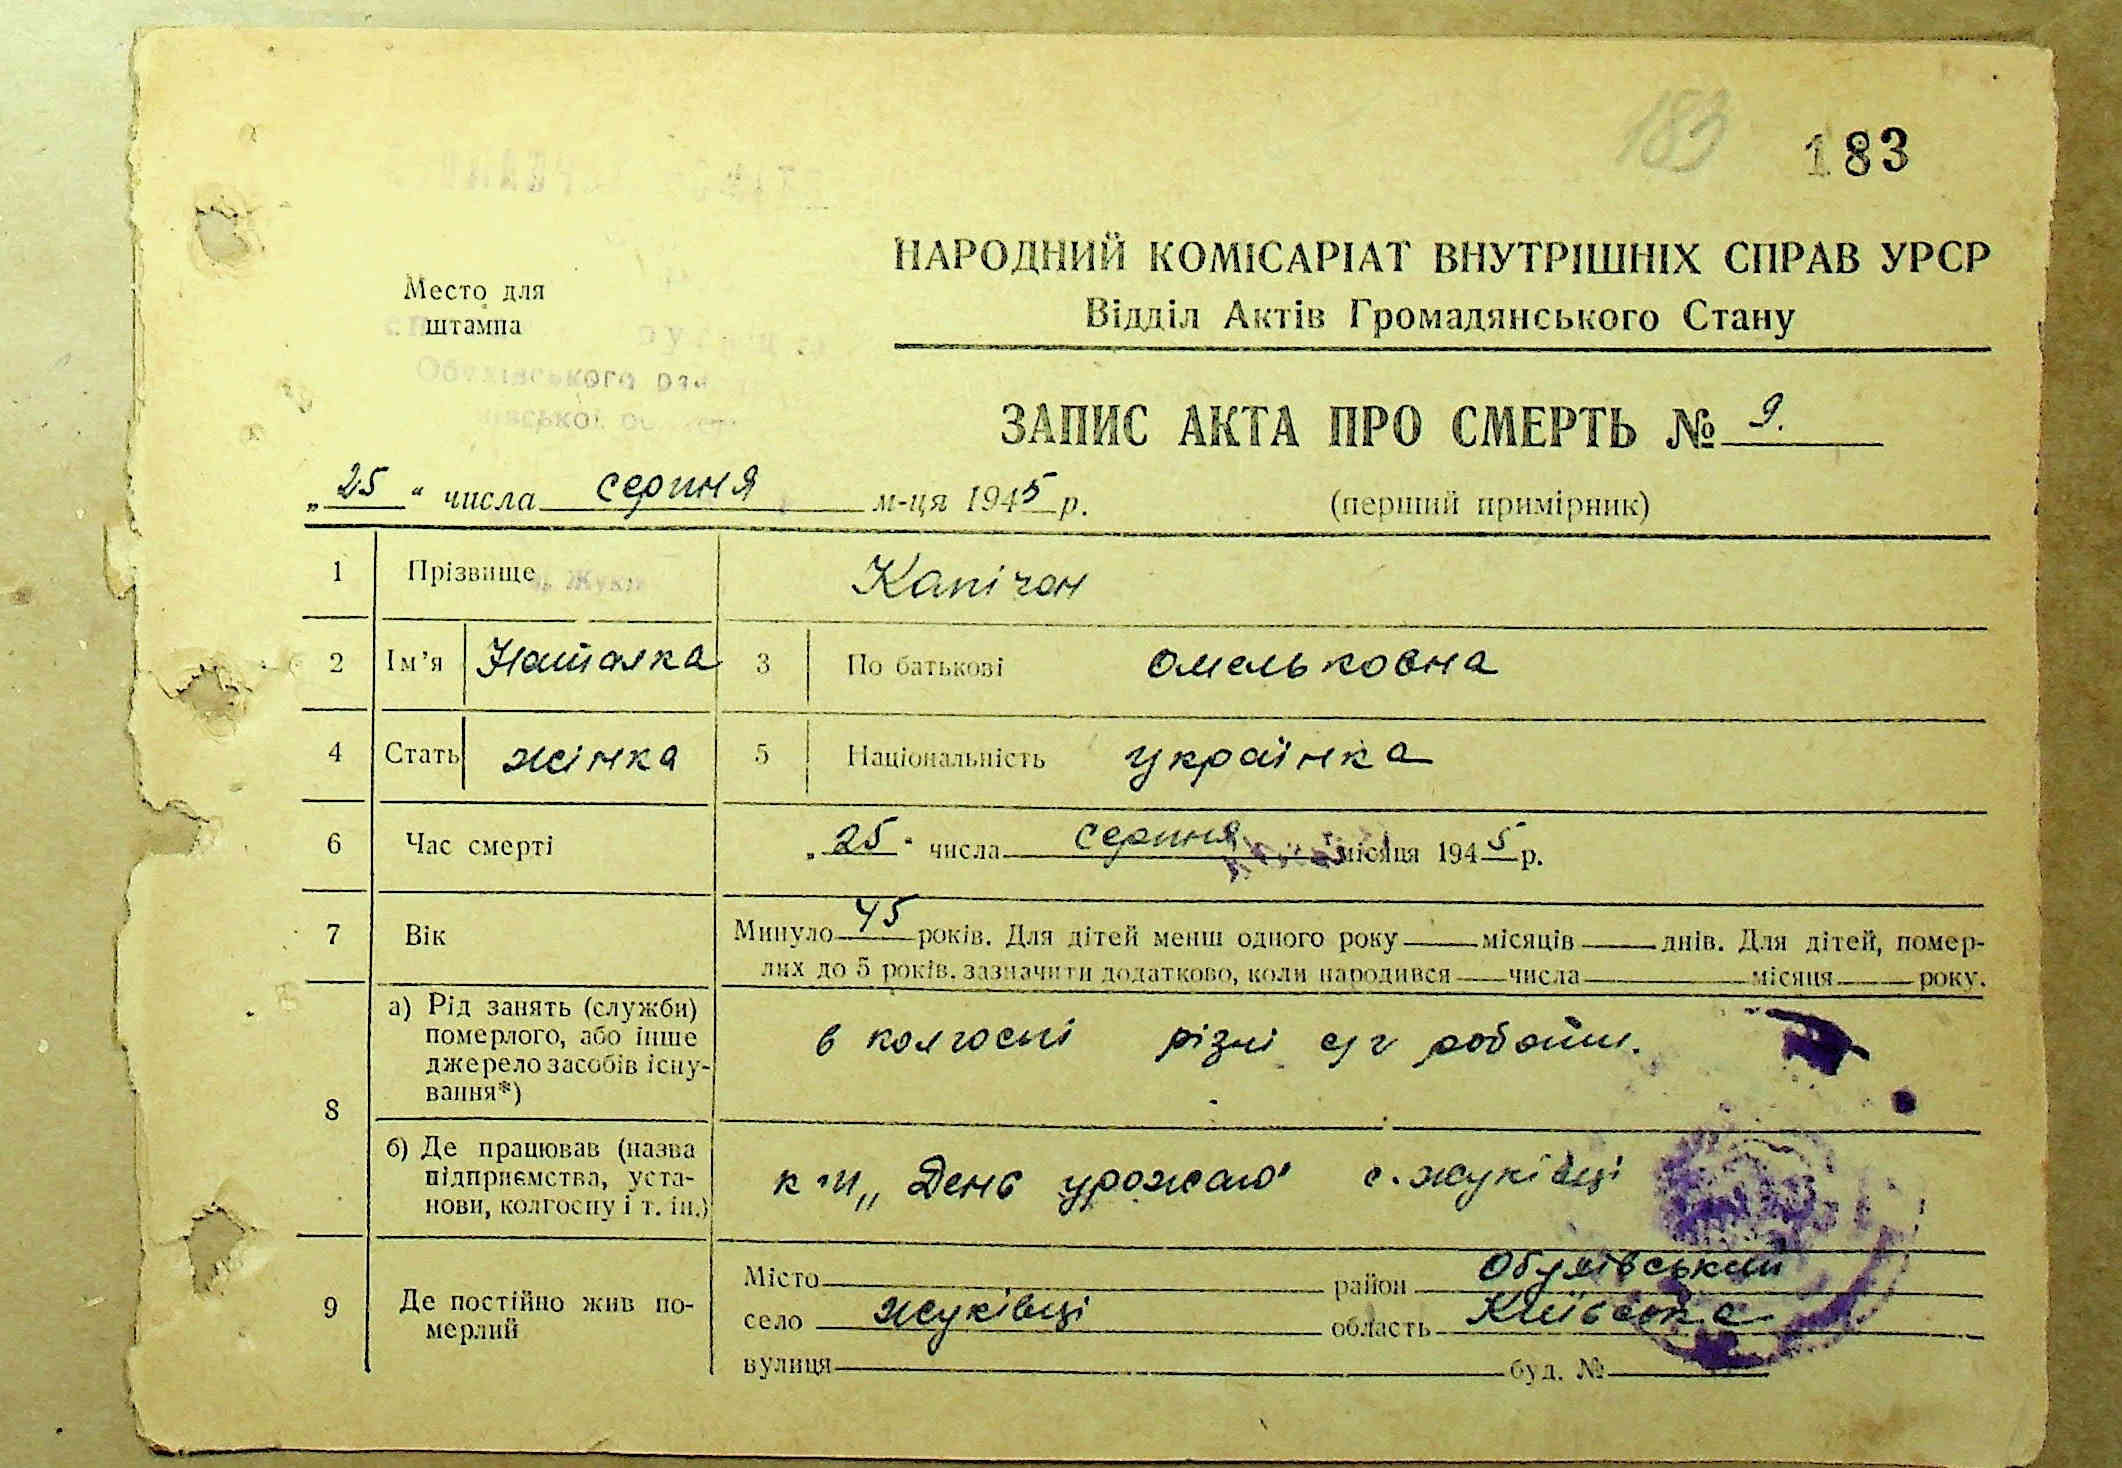 183
183
НАРОДНИЙ КОМІСАРІАТ ВНУТРІШНІХ СПРАВ УРСР
Відділ Актів Громадянського Стану
Место для
штампа
Обухівського
ЗАПИС АКТА ПРО СМЕРТЬ № 9.
„25" числа серпня м-ця 1945 р.
(перший примірник)
1 Прізвище Капічон
2 Ім'я Наталка 3 По батькові Омельковна
4 Стать жінка 5 Національність українка
6 Час смерті „25" числа серпня місяця 1945 р.
7 Вік Минуло 45 років. Для дітей менш одного року місяців днів. Для дітей, помер-
лих до 5 років, зазначити додатково, коли народився числа місяця року.
8 а) Рід занять (служби)
померлого, або інше
джерело засобів існу-
вання*)
в колгоспі різні с/г роботи.
б) Де працював (назва
підприємства, уста-
нови, колгоспу і т. ін.)
к-п „День урожаю" с. Жуківці
9 Де постійно жив по-
мерлий
Місто район Обухівський
село Жуківці область Київська
вулиця буд. №